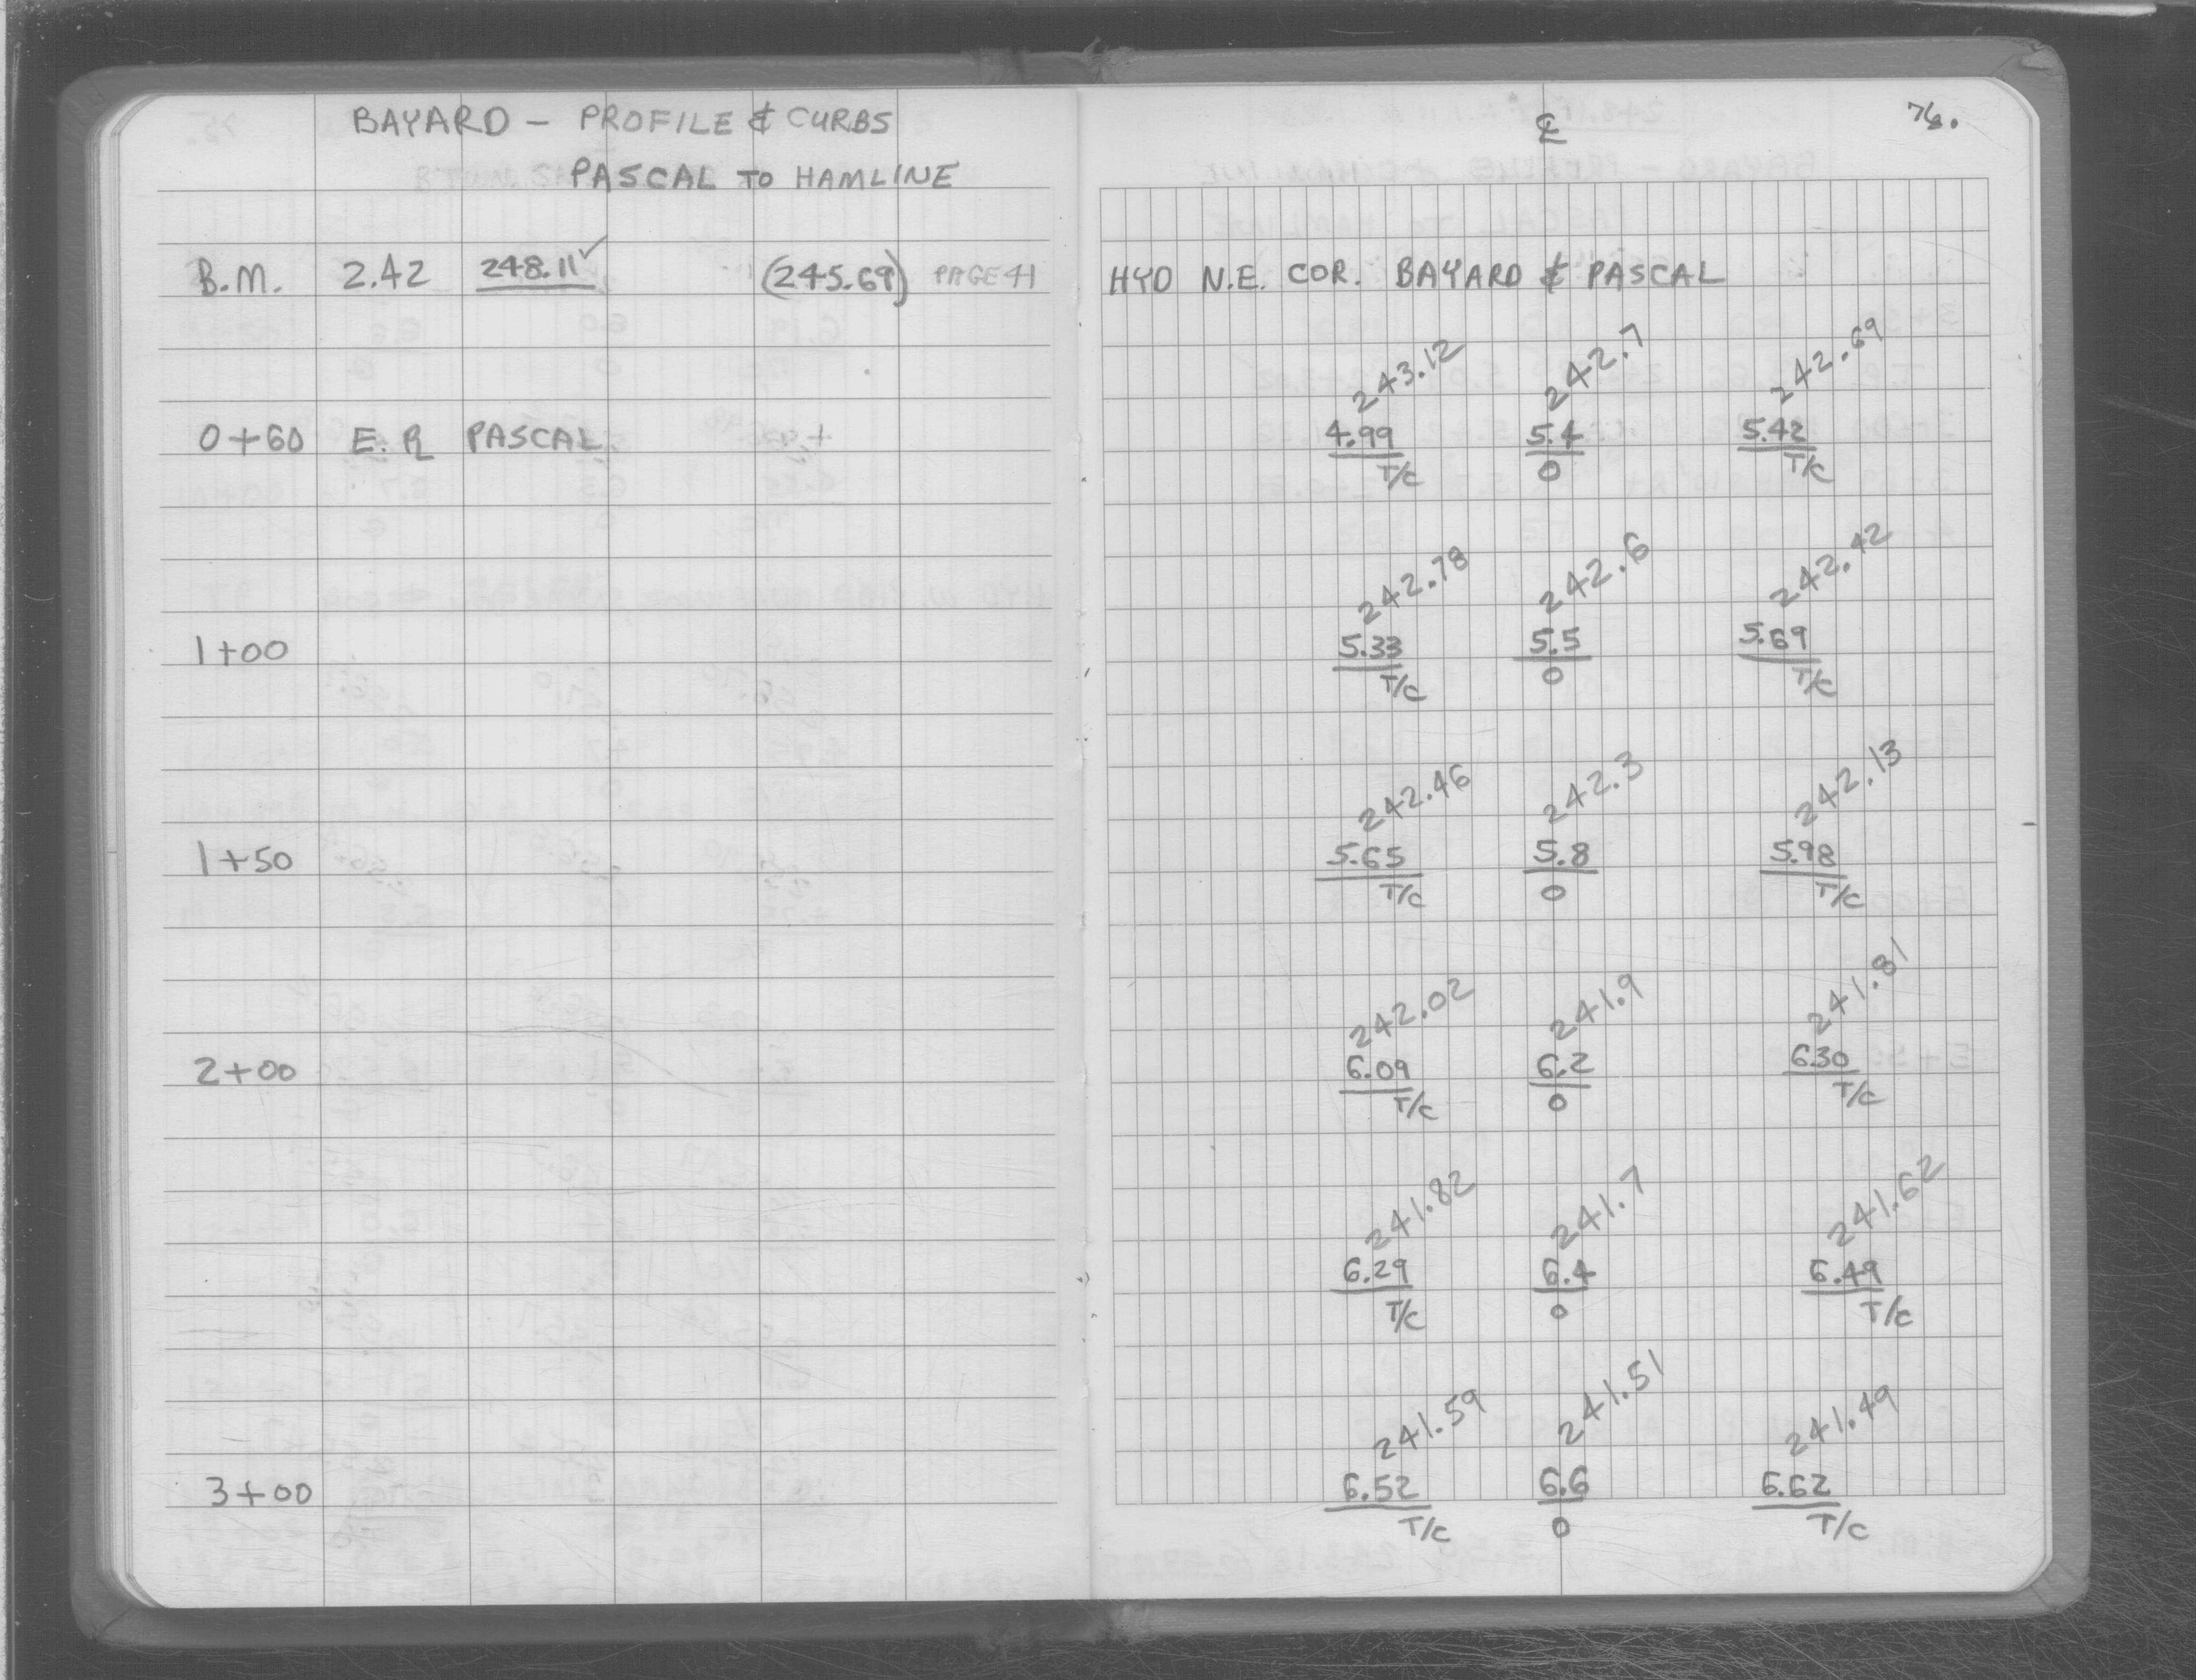 BAYARD - PROFILE & CURBS
PASCAL TO HAMLINE
B.M. 2.42 248.11✓ (245.69) PAGE 41
0+60 E. R PASCAL
1+00
1+50
2+00
3+00
℄ 76.
HYD N.E. COR. BAYARD & PASCAL
243.12 242.7 242.69
4.99 5.4 5.42
T/C 0 T/C
242.78 242.6 242.42
5.33 5.5 5.69
T/C 0 T/C
242.46 242.3 242.13
5.65 5.8 5.98
T/C 0 T/C
242.02 241.9 241.81
6.09 6.2 6.30
T/C 0 T/C
241.82 241.7 241.62
6.29 6.4 6.49
T/C 0 T/C
241.59 241.51 241.49
6.52 6.6 6.62
T/C 0 T/C